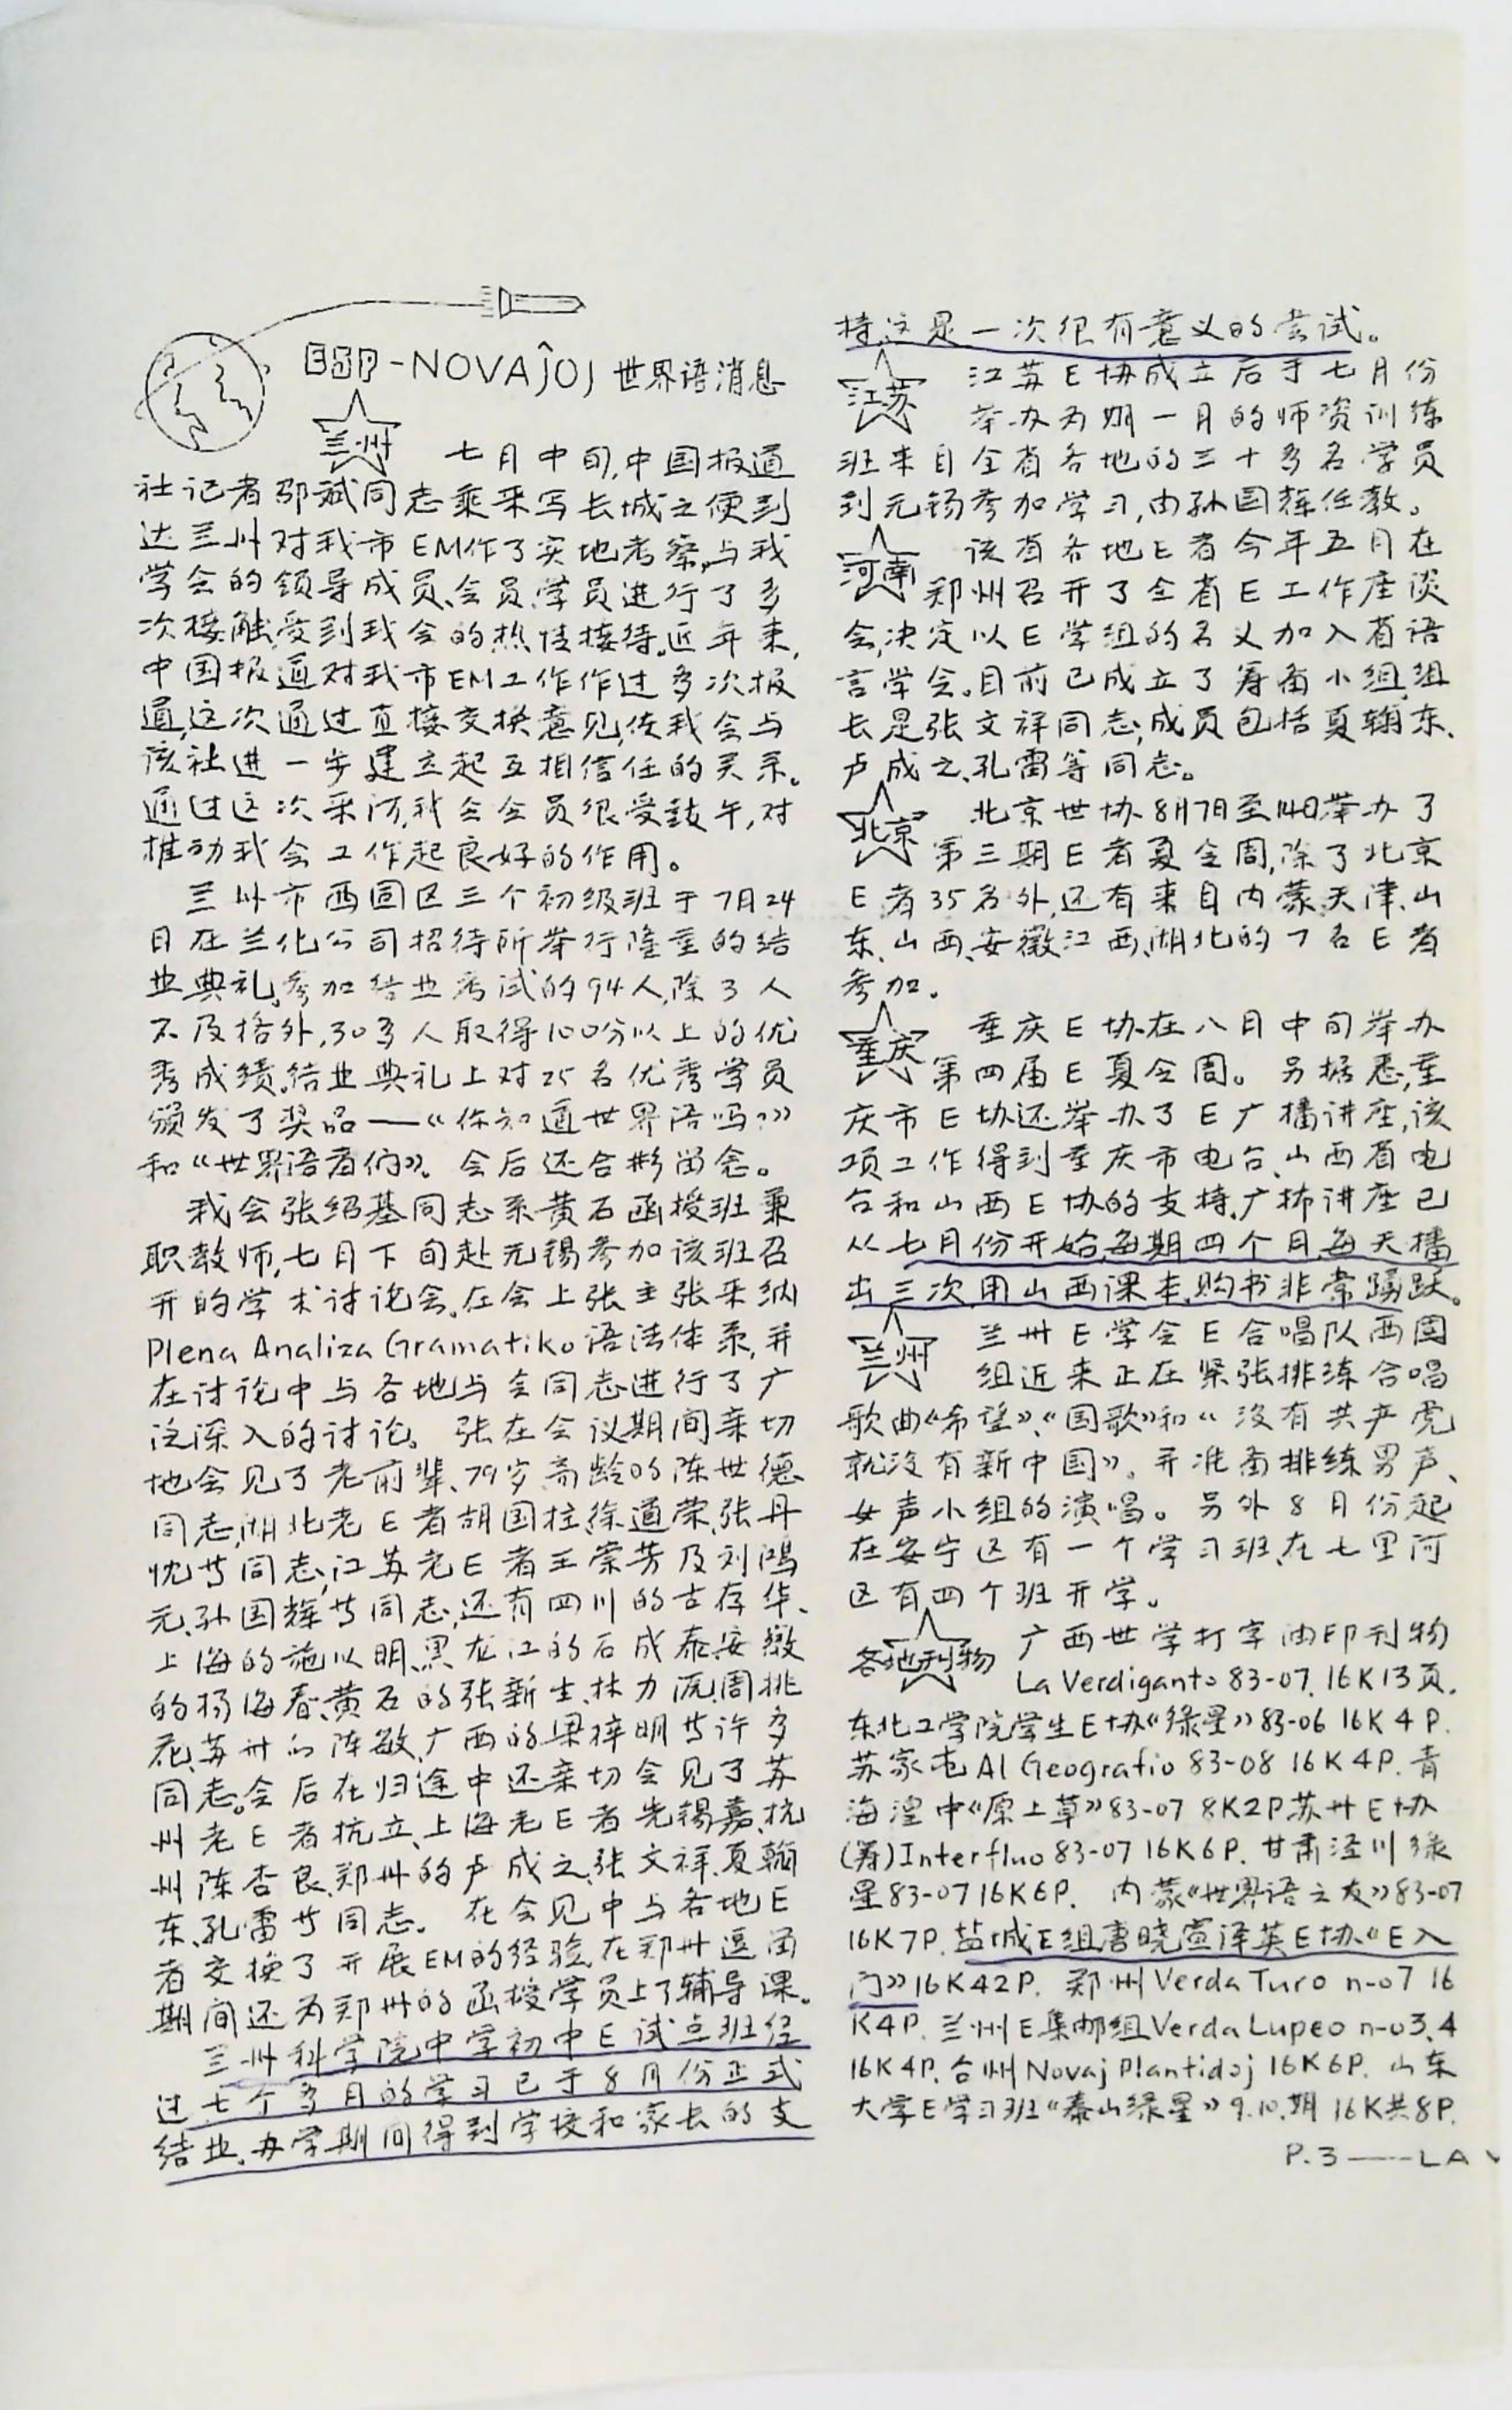 ESP-NOVAĴOJ 世界语消息
兰州
七月中旬,中国报道
社记者邵斌同志乘采写长城之便到
达兰州对我市EM作了实地考察,与我
学会的领导成员、会员、学员进行了多
次接触,受到我会的热情接待。近年来,
中国报道对我市EM工作作过多次报
道,这次通过直接交换意见,使我会与
该社进一步建立起互相信任的关系。
通过这次采访,我会会员很受鼓午,对
推动我会工作起良好的作用。
兰州市西固区三个初级班于7月24
日在兰化公司招待所举行隆重的结
业典礼。参加结业考试的94人,除3人
不及格外,30多人取得100分以上的优
秀成绩。结业典礼上对25名优秀学员
颁发了奖品——《你知道世界语吗?》
和《世界语者们》。会后还合影留念。
我会张绍基同志系黄石函授班兼
职教师,七月下旬赴无锡参加该班召
开的学术讨论会。在会上张主张采纳
Plena Analiza Gramatiko语法体系,并
在讨论中与各地与会同志进行了广
泛深入的讨论。张在会议期间亲切
地会见了老前辈、79岁高龄的陈世德
同志,湖北老E者胡国柱、徐道荣、张丹
忱等同志,江苏老E者王崇芳及刘鸿
元、孙国辉等同志,还有四川的古存华、
上海的施以明、黑龙江的石成泰、安徽
的杨海春、黄石的张新生、林力源、周桃
花、苏州的陈敏、广西的梁梓明等许多
同志。会后在归途中还亲切会见了苏
州老E者抗立、上海老E者先锡嘉、杭
州陈杏良、郑州的卢成之、张文祥、夏翰
东、孔雷等同志。在会见中与各地E
者交换了开展EM的经验,在郑州逗留
期间还为郑州的函授学员上了辅导课。
兰州科学院中学初中E试点班经
过七个多月的学习已于8月份正式
结业。办学期间得到学校和家长的支
持,这是一次很有意义的尝试。
江苏
江苏E协成立后于七月份
举办为期一月的师资训练
班来自全省各地的三十多名学员
到无锡参加学习,由孙国辉任教。
河南
该省各地E者今年五月在
郑州召开了全省E工作座谈
会,决定以E学组的名义加入省语
言学会。目前已成立了筹备小组,组
长是张文祥同志,成员包括夏翰东、
卢成之、孔雷等同志。
北京
北京世协8月7日至14日举办了
第三期E者夏令周,除了北京
E者35名外,还有来自内蒙、天津、山
东、山西、安徽、江西、湖北的7名E者
参加。
重庆
重庆E协在八月中旬举办
第四届E夏令周。另据悉,重
庆市E协还举办了E广播讲座,该
项工作得到重庆市电台、山西省电
台和山西E协的支持。广播讲座已
从七月份开始,每期四个月,每天播
出三次,用山西课本,购书非常踊跃。
兰州
兰州E学会E合唱队西固
组近来正在紧张排练合唱
歌曲《希望》、《国歌》和《没有共产党
就没有新中国》。并准备排练男声、
女声小组的演唱。另外8月份起
在安宁区有一个学习班、在七里河
区有四个班开学。
各地刊物
广西世学打字油印刊物
La Verdiganto 83-07. 16K13页.
东北工学院学生E协《绿星》83-06 16K 4P.
苏家屯 Al Geografio 83-08 16K 4P. 青
海湟中《原上草》83-07 8K2P 苏州E协
(筹)Interfluo 83-07 16K6P. 甘肃泾川绿
星83-07 16K6P. 内蒙《世界语之友》83-07
16K7P. 盐城E组唐晓宣译英E协《E入
门》16K42P. 郑州Verda Turo n-07 16
K4P. 兰州E集邮组Verda Lupeo n-03,4
16K4P. 台州Novaj Plantidoj 16K6P. 山东
大学E学习班《泰山绿星》9.10.期 16K共8P.
P.3——LA